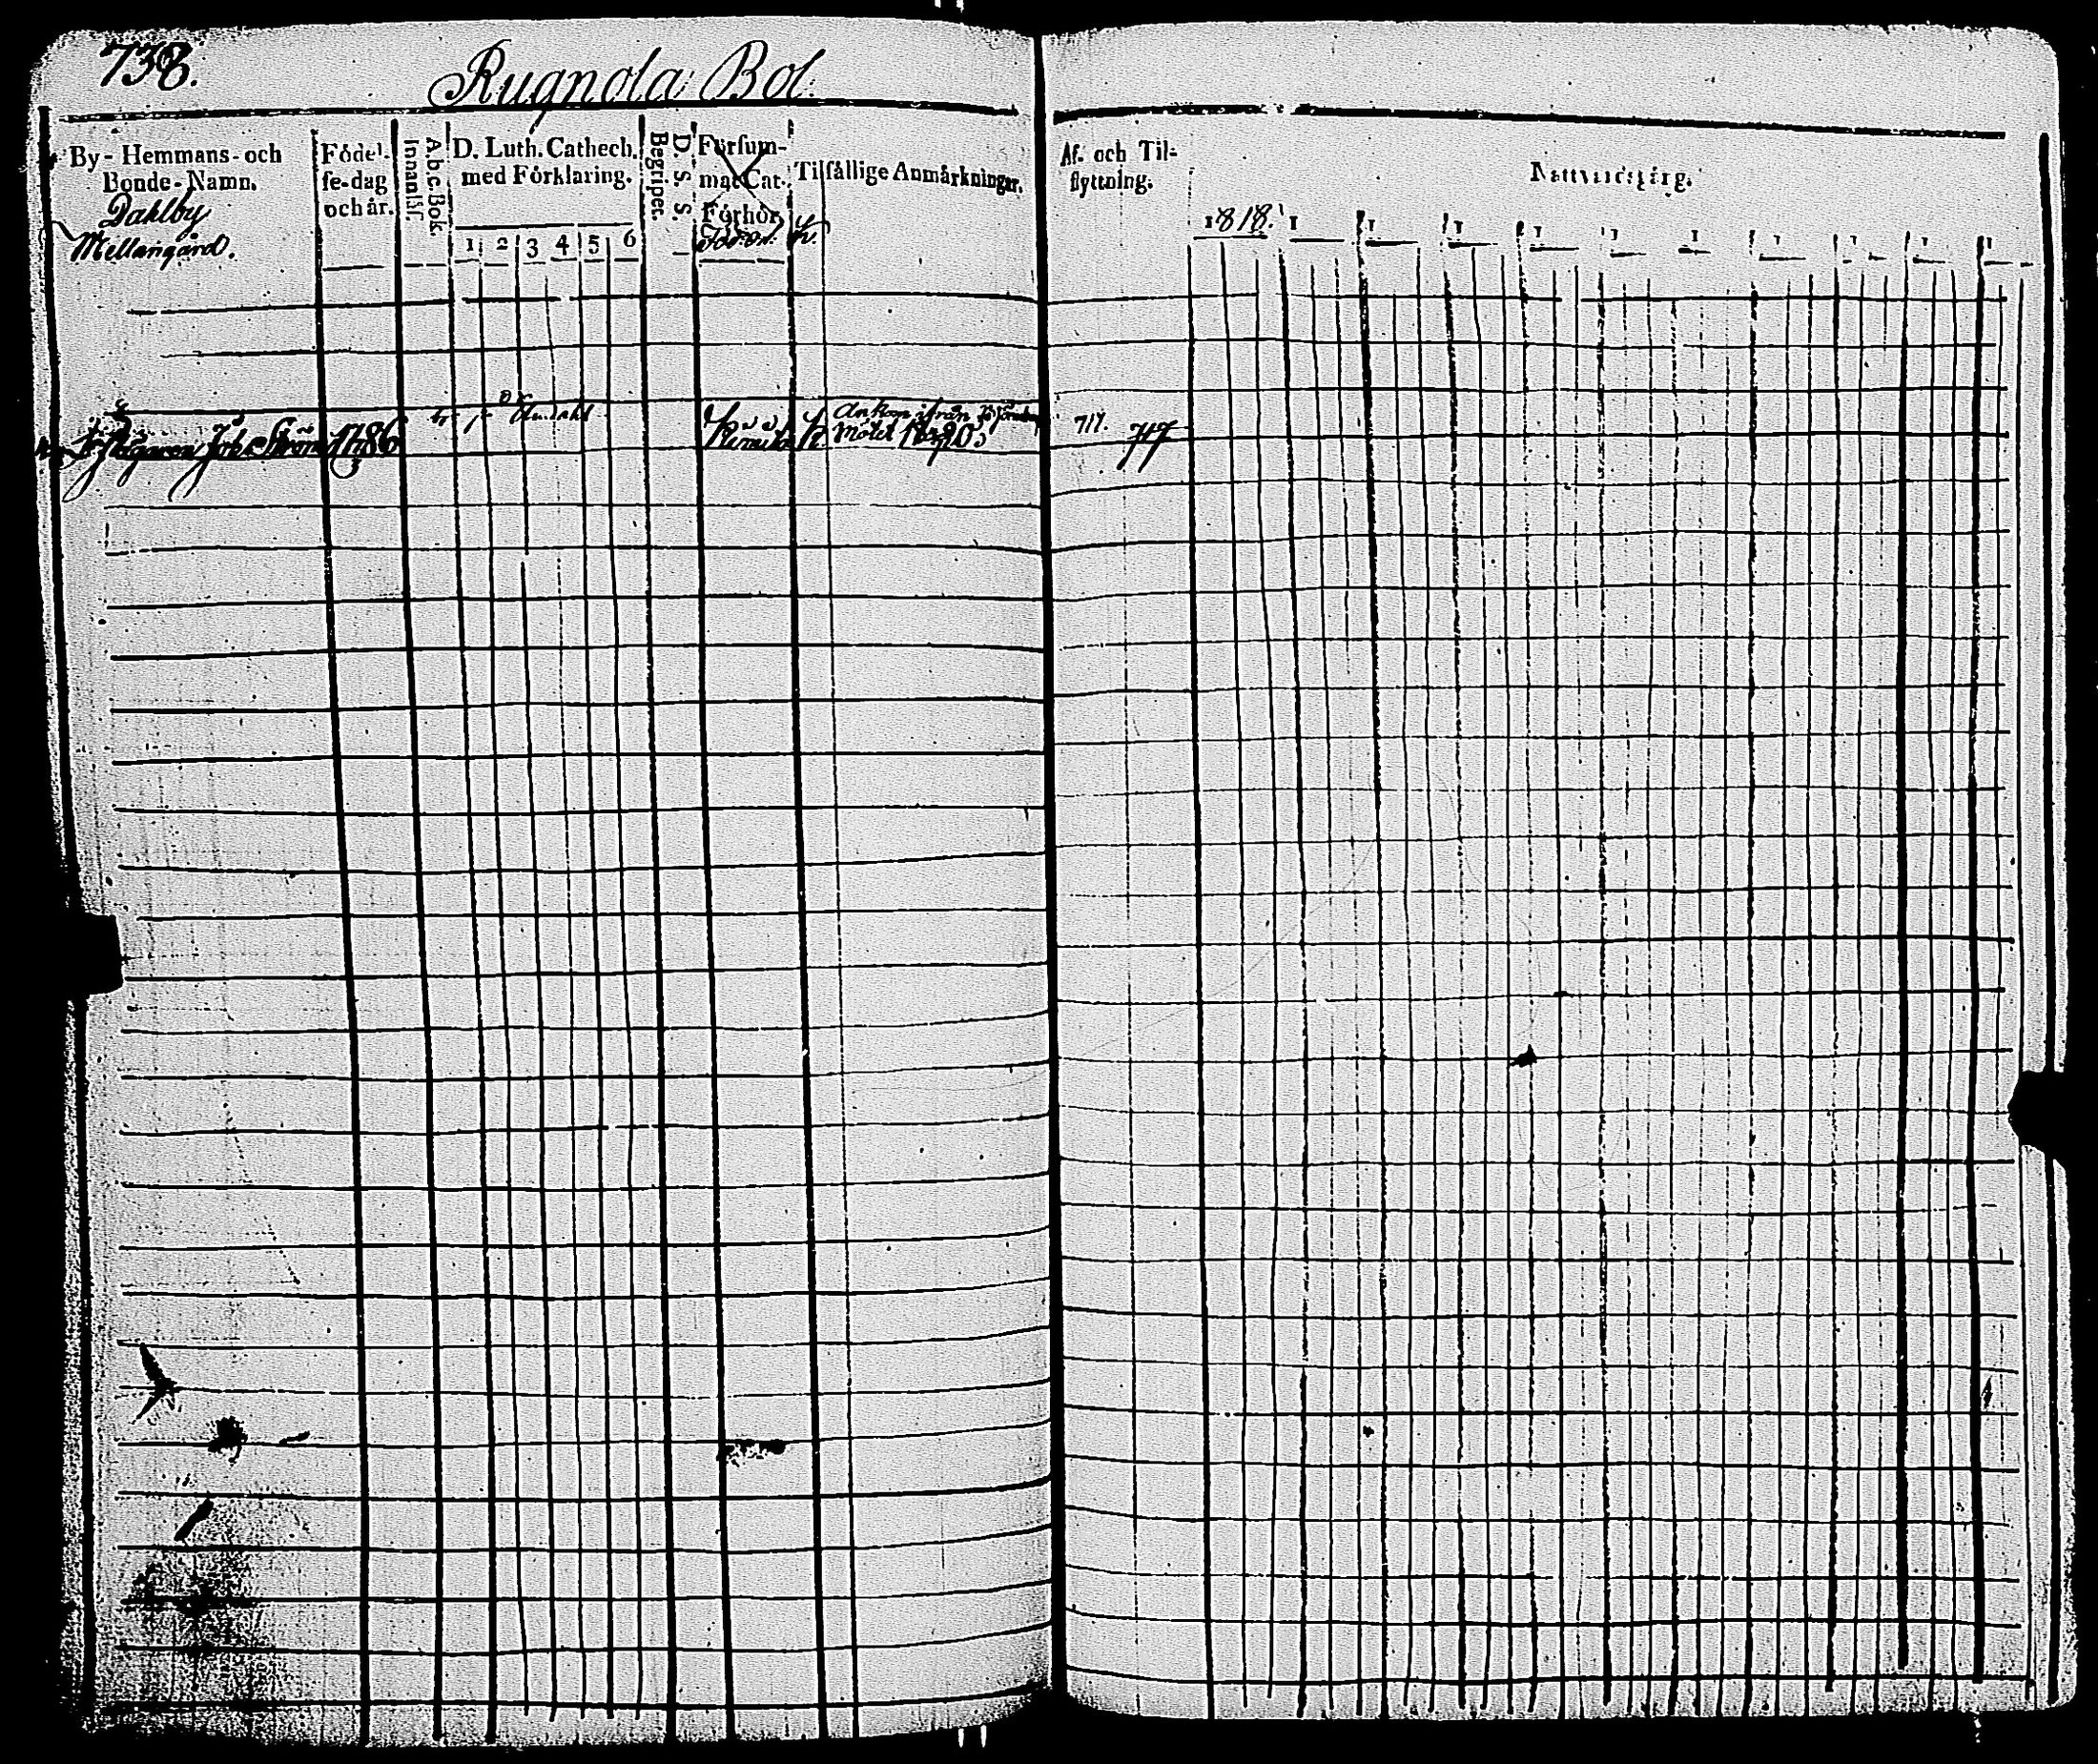 738.
Rugnola Bol.
By- Hemmans- och
Bonde-Namn.
Dahlby
Mellangård.
Födel-
se-dag
och år.
A.b.c.Bok.
Innanläs.
D. Luth. Cathech.
med Förklaring.
1 2 3 4 5 6
D. S. S.
Begriper.
Försum-
mat Cat.
Förhör.
Tilfällige Anmärkningar.
Af- och Til-
flyttning.
Nattvardsgång.
1818. 1 1 1 1 1 1 1 1 1 1
1786
Ankom ifrån
Mötet
717. 717